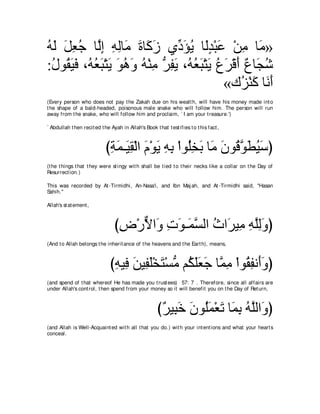 «مَا مِنْ عَبْدٍ لَا يُؤَدِّي زَكَاةَ مَالِهِ إِلَّا جُعِلَ لَهُ
شُجَاعٌ أَقْرَعُ يَتْبَعُهُ، يَفِرُّ مِنْهُ وَهُوَ يَتْبَعُهُ، فَيَقُولُ:
أَنَا كَنْزُك»
(Every person who does not pay the Zakah due on his wealth, will have his money made into
the shape of a bald-headed, poisonous male snake who will follow him. The person will run
away from the snake, who will follow him and proclaim, `I am your treasure.')
`Abdullah then recited the Ayah in Allah's Book that testifies to this fact,
(سَيُطَوَّقُونَ مَا بَخِلُواْ بِهِ يَوْمَ الْقِيَـمَةِ)
(the things that they were stingy with shall be tied to their necks like a collar on the Day of
Resurrection.)
This was recorded by At-Tirmidhi, An-Nasa'i, and Ibn Majah, and At-Tirmidhi said, "Hasan
Sahih."
Allah's statement,
(وَللَّهِ مِيرَاثُ السَّمَـوَتِ وَالاٌّرْضِ)
(And to Allah belongs the inheritance of the heavens and the Earth), means,
(وَأَنفِقُواْ مِمَّا جَعَلَكُم مُّسْتَخْلَفِينَ فِيهِ)
(and spend of that whereof He has made you trustees) 57: 7 . Therefore, since all affairs are
under Allah's control, then spend from your money so it will benefit you on the Day of Return,
(وَاللَّهُ بِمَا تَعْمَلُونَ خَبِيرٌ)
(and Allah is Well-Acquainted with all that you do.) with your intentions and what your hearts
conceal.